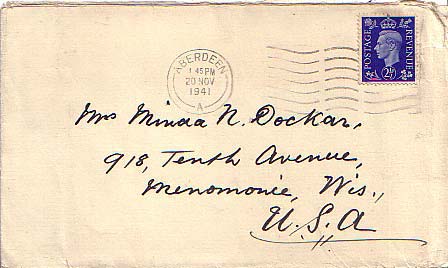 ABERDEEN
1 45 PM
20 NOV
1941
A
POSTAGE
REVENUE
2½D
Mrs Minda N. Dockar,
918, Tenth Avenue,
Menomonie, Wis.,
U.S.A